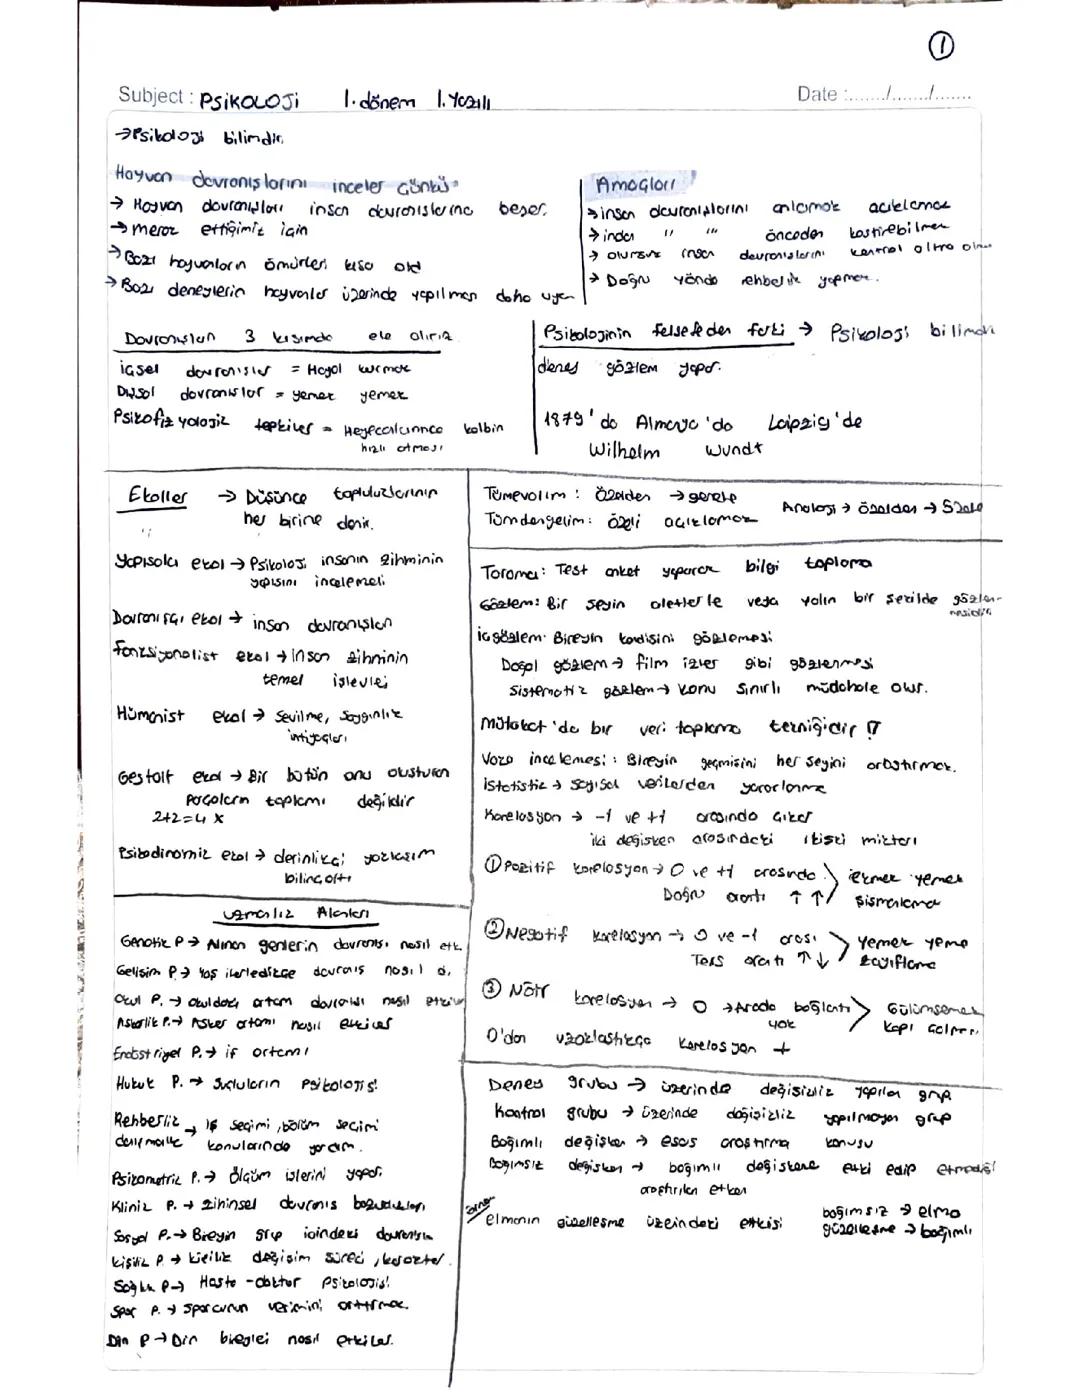 ①
Subject : PSİKOLOJİ 1. dönem 1. Yazılı
Date :......./......./.......
→Psikoloji bilimdir.
Hayvan davranışlarını inceler Çünkü
→ Hayvan davranışları insan davranışlarına benzer.
→ merak ettiğimiz için
→ Bazı hayvanların ömürleri kısa old
→ Bazı deneylerin hayvanlar üzerinde yapılması daha uygun
Amaçları
→ insan davranışlarını anlamak açıklamak
→ insan " " önceden kestirebilmek
→ olursuz insan davranışlarını kontrol altına alma
→ Doğru yönde rehberlik yapmak.
Davranışları 3 kısımda ele alırız
içsel davranışlar = Hayal kurmak
Dışsal davranışlar = yemek yemek
Psikofizyolojik tepkiler = Heyecalanınca kalbin
hızlı atması
Psikolojinin felsefeden farkı → Psikoloji bilimdir
deney gözlem yapar.
1879'da Almaya'da Leipzig'de
Wilhelm Wundt
Ekoller → Düşünce topluluklarının
her birine denir.
Yapısalcı ekol → Psikoloji insanın zihminin
yapısını incelemeli
Davranışçı ekol → insan davranışları
Fonksiyonalist ekol → insan zihninin
temel işlevleri
Hümanist ekol → Sevilme, Saygınlık
ihtiyaçları
Gestalt ekol → Bir bütün onu oluşturan
Parçaların toplamı değildir
2+2=4 X
Psikodinamik ekol → derinlikçi yaklaşım
bilinçaltı
Uzmanlık Alanları
Genetik P → Alınan genlerin davranışı nasıl etk.
Gelişim P → Yaş ilerledikçe davranış nasıl d.
Okul P. → okuldaki ortam davranışı nasıl etkiler
Askerlik P. → Asker ortamı nasıl etkiler
Endüstriyel P. → iş ortamı
Hukuk P. → Suçluların Psikolojisi
Rehberlik → iş seçimi, bölüm seçimi
danışmanlık konularında yardım.
Psikometrik P. → Ölçüm işlerini yapar.
Klinik P. → zihinsel davranış bozuklukları
Sosyal P. → Bireyin grup içindeki davranışı
Kişilik P → kişilik değişim süreci, karakter.
Sağlık P → Hasta - doktor Psikolojisi
Spor P. → Sporcunun verimini arttırmak.
Din P → Din bireyleri nasıl etkiler.
Tümevarım : Özelden → genele
Tümdengelim: özeli açıklamak
Analoji → özelden → özele
Tarama: Test anket yaparak bilgi toplama
Gözlem: Bir şeyin aletlerle veya yalın bir şekilde gözlen-
mesidir
iç gözlem: Bireyin kendisini gözlemesi
Doğal gözlem → film izler gibi gözlenmesi
Sistematik gözlem → Konu sınırlı müdahale olur.
Mülakat'da bir veri toplama tekniğidir
Vaka incelemesi : Bireyin geçmişini her şeyini araştırmak.
İstatistik → sayısal verilerden yararlanma
Korelasyon → -1 ve +1 arasında çıkar
iki değişken arasındaki ilişki miktarı
① Pozitif korelasyon → 0 ve +1 arasında
Doğru orantı ↑ ↑
ekmek yemek
şişmanlamak
② Negatif korelasyon → 0 ve -1 arası
Ters orantı ↑ ↓
Yemek yeme
zayıflama
③ Nötr korelasyon → 0 → Arada bağlantı
yok
Gülümsemek
kapı çalması
0'dan uzaklaştıkça Korelasyon +
Deney grubu → üzerinde değişiklik yapılan grup
Kontrol grubu → üzerinde değişiklik yapılmayan grup
Bağımlı değişken → esas araştırma konusu
Bağımsız değişken → bağımlı değişkene etki edip etmediği
araştırılan etken
örnek
elmanın güzelleşme üzeindeki etkisi
bağımsız → elma
güzelleşme → bağımlı